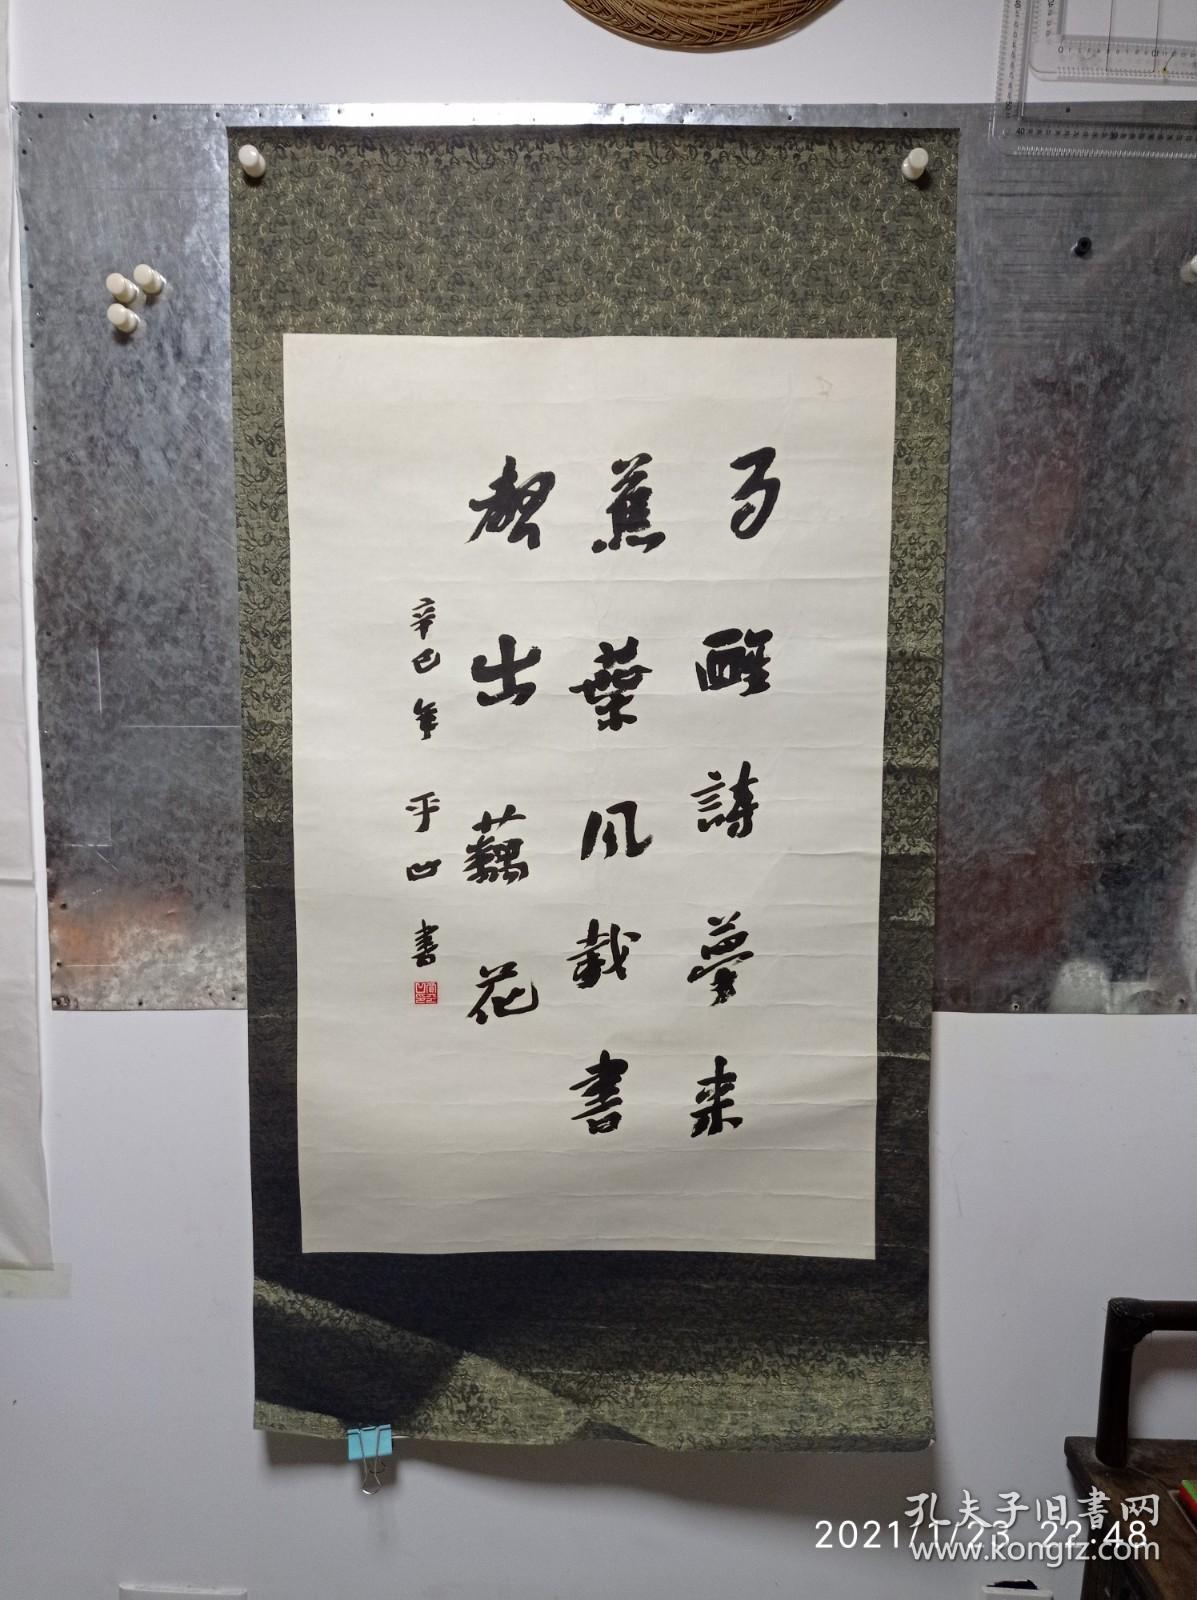 雨醒詩夢来
蕉葉風載書
聲出藕花
辛巳年 平凹書
孔夫子旧書网
2021/1/23 22:48
www.kongfz.com